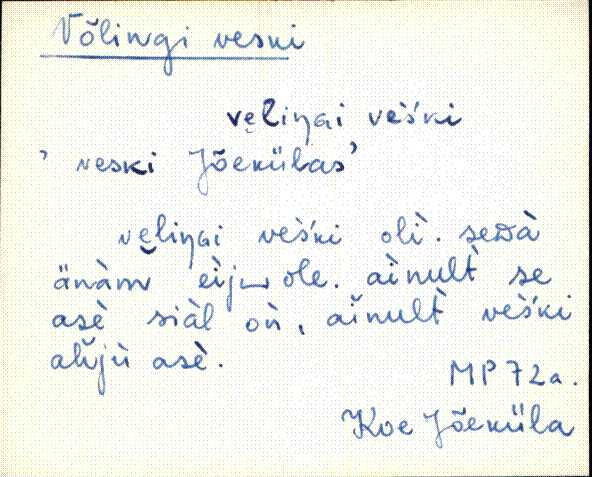 Võlingi veski
ve̮liŋai vèśki
' veski Jõekülas'
ve̮liŋai vèśki olì. seDà
änàm èijω ole. aìnult̀ se
asè siàl oǹ, aìnult̀ vèśki
alùjù asè.
MP 72a.
Koe Jõeküla